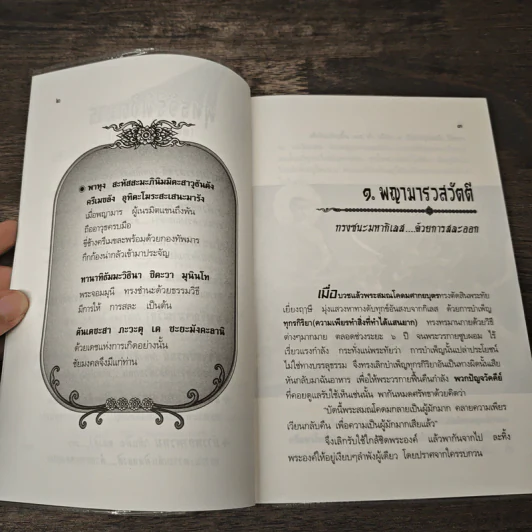 ๏ พาหุง สะหัสสะมะภินิมมิตะสาวุธันตัง
ครีเมขลัง อุทิตะโฆระสะเสนะมารัง
เมื่อพญามาร ผู้เนรมิตแขนถึงพัน
ถืออาวุธครบมือ
ขี่ช้างครีเมขละพร้อมด้วยกองทัพมาร
กึกก้องน่ากลัวเข้ามาประจัญ
ทานาทิธัมมะวิธินา ชิตะวา มุนินโท
พระจอมมุนี ทรงชำนะด้วยธรรมวิธี
มีการให้ การสละ เป็นต้น
ตันเตชะสา ภะวะตุ เต ชะยะมังคะลานิ
ด้วยเดชแห่งการเกิดอย่างนั้น
ชัยมงคลจึงมีแก่ท่าน
๑. พญามารวสวัตดี
ทรงชนะมหากิเลส....ด้วยการสละออก
เมื่อบวชแล้วพระสมณโคดมศากยบุตรทรงตัดสินพระทัย
เยี่ยงฤๅษี มุ่งแสวงหาทางดับทุกข์อันสงบจากกิเลส ด้วยการบำเพ็ญ
ทุกรกิริยา(ความเพียรทำสิ่งที่ทำได้แสนยาก) ทรงทรมานกายด้วยวิธี
ต่างๆมากมาย ตลอดช่วงระยะ ๖ ปี จนพระวรกายซูบผอม ไร้
เรี่ยวแรงกำลัง กระทั่งแน่พระทัยว่า การบำเพ็ญนั้นเปล่าประโยชน์
ไม่ใช่ทางบรรลุธรรม จึงทรงเลิกบำเพ็ญทุกรกิริยาอันเป็นทางผิดนั้นเสีย
หันกลับมาฉันอาหาร เพื่อให้พระวรกายฟื้นคืนกำลัง พวกปัญจวัคคีย์
ที่คอยดูแลรับใช้เช่นนั้น พากันหมดศรัทธาด้วยคิดว่า
"บัดนี้พระสมณโคดมกลายเป็นผู้มักมาก คลายความเพียร
เวียนกลับคืน เพื่อความเป็นผู้มักมากเสียแล้ว"
จึงเลิกรับใช้ใกล้ชิดพระองค์ แล้วพากันจากไป ละทิ้ง
พระองค์ให้อยู่เงียบๆลำพังผู้เดียว โดยปราศจากใครรบกวน